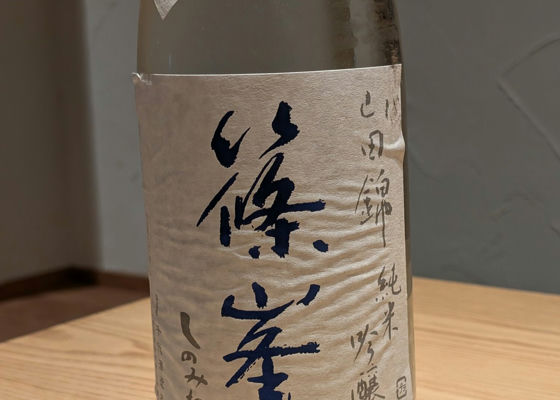 山田錦 純米
吟醸
篠峯
しのみ